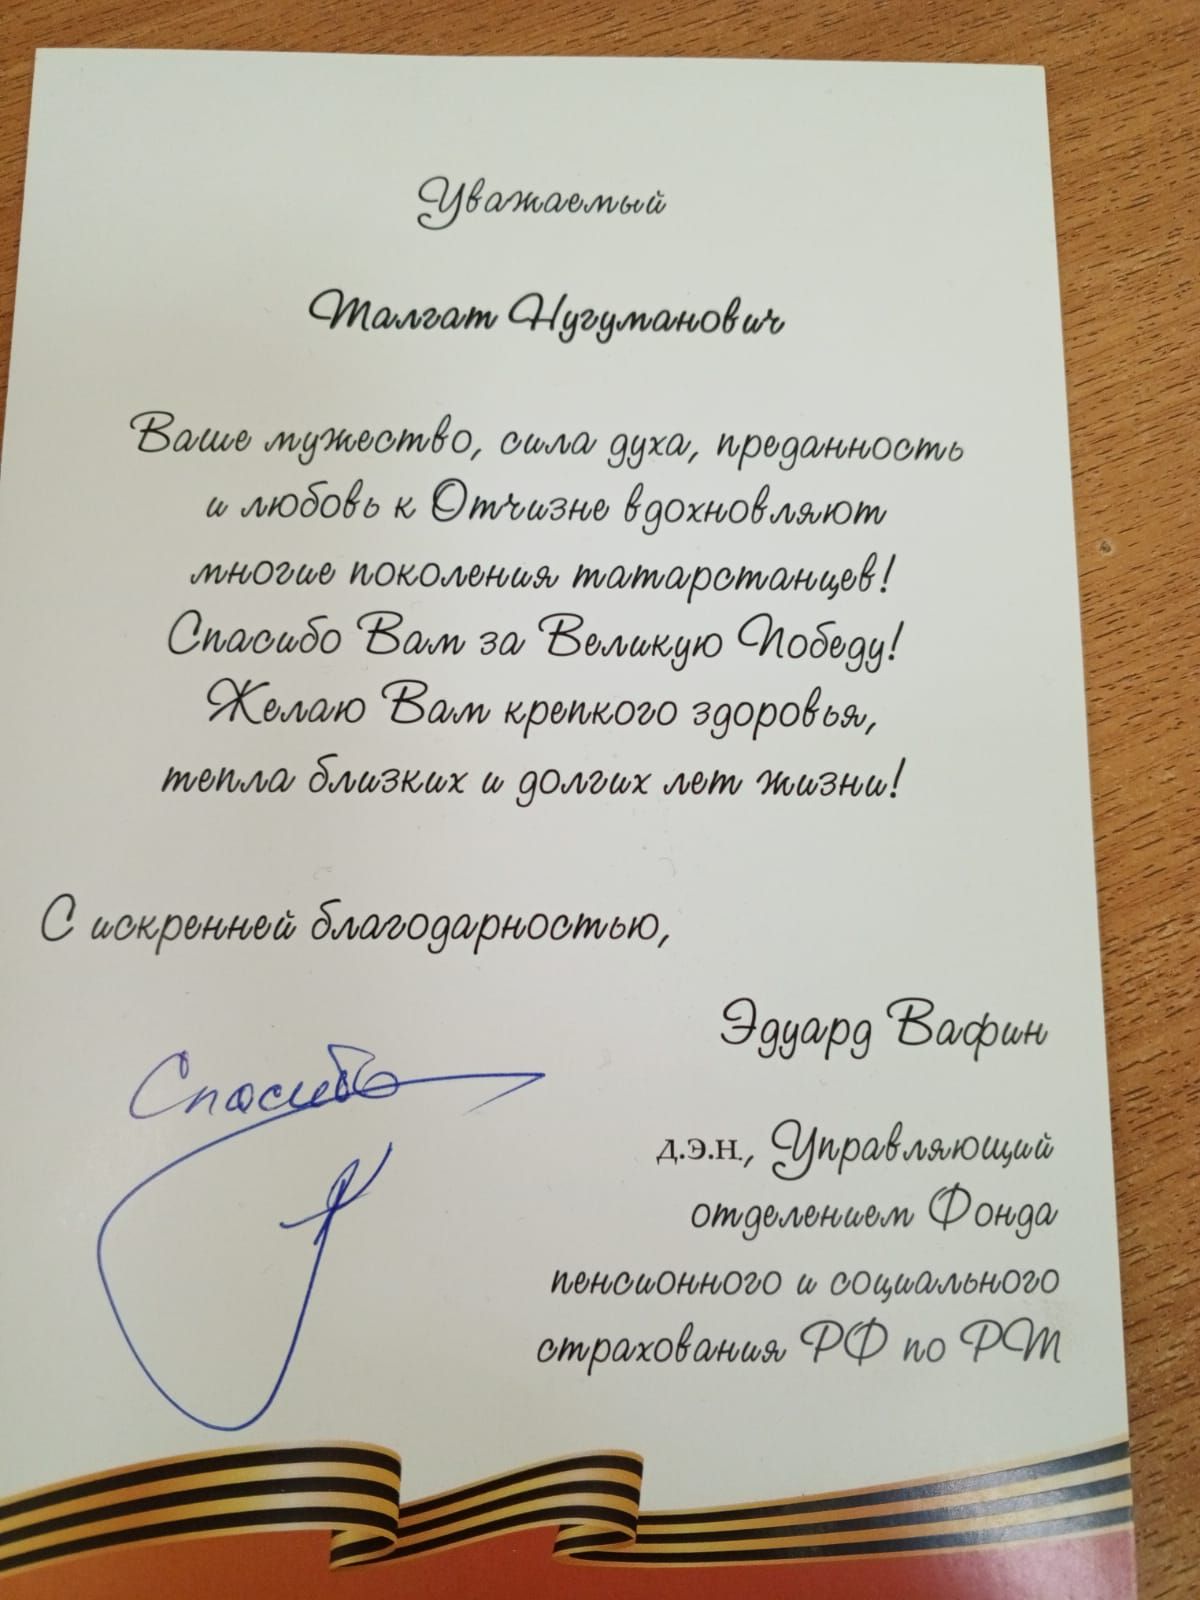 Уважаемый
Талгат Нугуманович
Ваше мужество, сила духа, преданность
и любовь к Отчизне вдохновляют
многие поколения татарстанцев!
Спасибо Вам за Великую Победу!
Желаю Вам крепкого здоровья,
тепла близких и долгих лет жизни!
С искренней благодарностью,
Эдуард Вафин
Спасибо
д.э.н., Управляющий
отделением Фонда
пенсионного и социального
страхования РФ по РТ